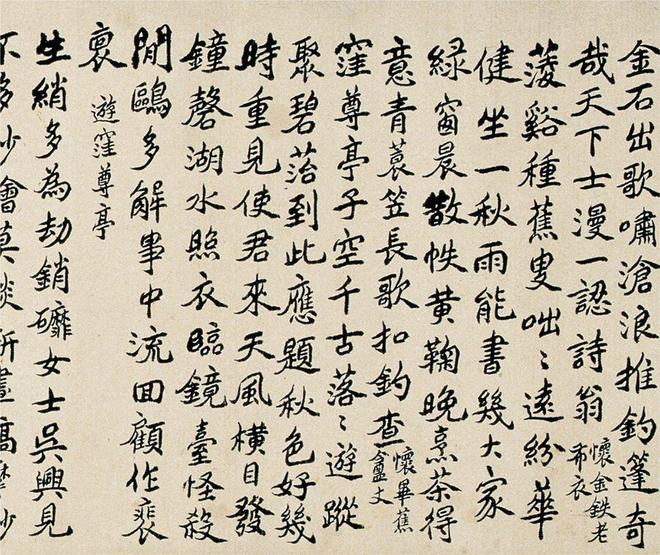 金石出歌嘯滄浪推釣篷奇
哉天下士漫一認詩翁
懷金鉄老
布衣
蔆谿種蕉叟咄〻遠紛華
健坐一秋雨能書幾大家
綠窗晨散帙黃鞠晚烹茶得
意青蓑笠長歌扣釣查
懷畢蕉
盦丈
窪尊亭子空千古落〻遊蹤
聚碧落到此應題秋色好幾
時重見使君來天風橫目發
鐘磬湖水照衣臨鏡臺怪殺
閒鷗多解事中流回顧作裴
褱
遊窪尊亭
生綃多為劫銷䃺女士吳興見